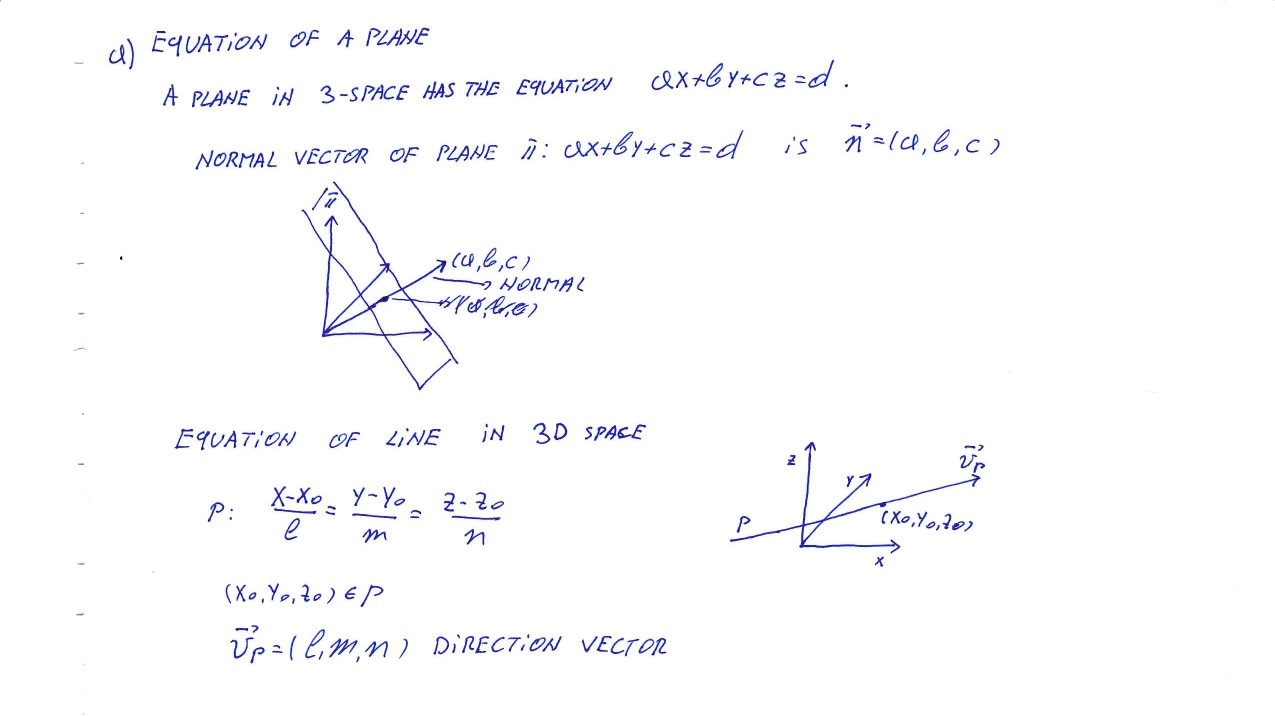 a) EQUATION OF A PLANE
A PLANE IN 3-SPACE HAS THE EQUATION ax+by+cz=d.
NORMAL VECTOR OF PLANE π: ax+by+cz=d is n⃗=(a,b,c)
π
(a,b,c)
NORMAL
EQUATION OF LINE IN 3D SPACE
P: (x-x₀)/l = (y-y₀)/m = (z-z₀)/n
z y v⃗ₚ
P (x₀,y₀,z₀)
x
(x₀,y₀,z₀) ∈ P
v⃗ₚ=(l,m,n) DIRECTION VECTOR